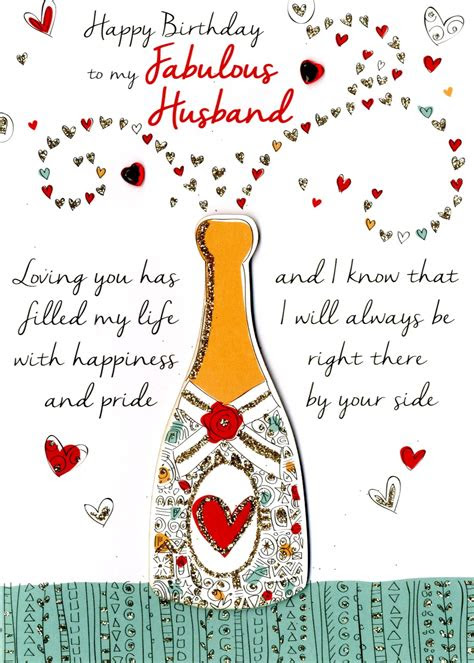 Happy Birthday
to my Fabulous
Husband
Loving you has
filled my life
with happiness
and pride
and I know that
I will always be
right there
by your side